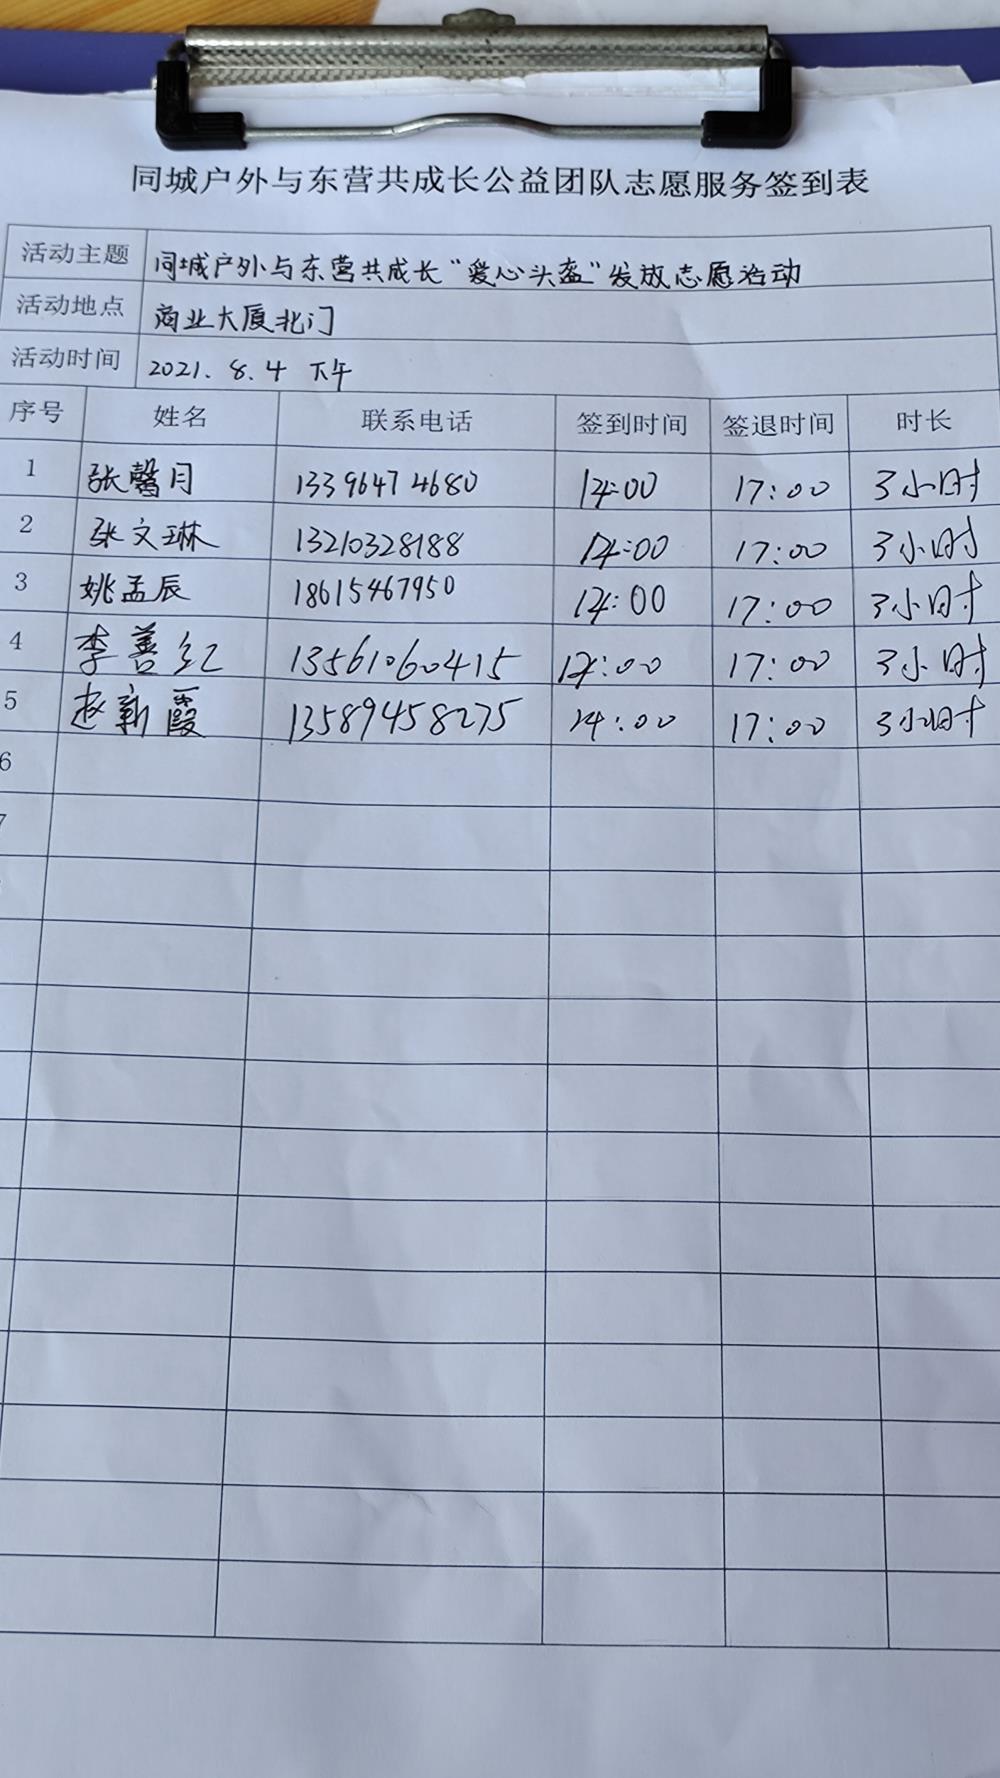 同城户外与东营共成长公益团队志愿服务签到表
活动主题 同城户外与东营共成长“爱心头盔”发放志愿活动
活动地点 商业大厦北门
活动时间 2021.8.4 下午
序号 姓名 联系电话 签到时间 签退时间 时长
1 张馨月 13396474680 14:00 17:00 3小时
2 张文琳 13210328188 14:00 17:00 3小时
3 姚孟辰 18615467950 14:00 17:00 3小时
4 李善红 13561060415 14:00 17:00 3小时
5 赵新霞 13589458275 14:00 17:00 3小时
6
7